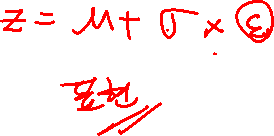 z = μ + σ × ε
표현